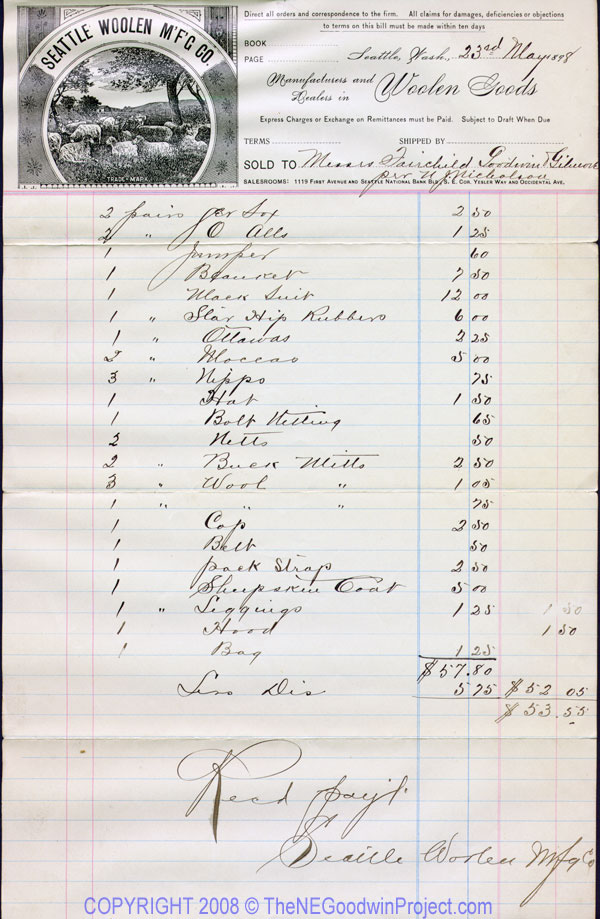 SEATTLE WOOLEN M'F'G CO.
TRADE-MARK
Direct all orders and correspondence to the firm. All claims for damages, deficiencies or objections
to terms on this bill must be made within ten days
BOOK
PAGE
Seattle, Wash., 23rd May 1898
Manufacturers and
Dealers in Woolen Goods
Express Charges or Exchange on Remittances must be Paid. Subject to Draft When Due
TERMS SHIPPED BY
SOLD TO Messrs Fairchild Goodwin & Gilmore
per N J Nicholson
SALESROOMS: 1119 FIRST AVENUE AND SEATTLE NATIONAL BANK BLD., S. E. COR. YESLER WAY AND OCCIDENTAL AVE.
2 pairs Ger Sox 2 50
2 " O Alls 1 25
1 Jumper 60
1 Blanket 7 50
1 Mack Suit 12 00
1 " Star Hip Rubbers 6 00
1 " Ottawas 2 25
2 " Moccas 5 00
3 " Nipps 75
1 Hat 1 50
1 Bolt Netting 65
2 Netts 50
2 " Buck Mitts 2 50
3 " Wool " 1 05
1 " " " 75
1 Cap 2 50
1 Belt 50
1 pack Strap 2 50
1 Sheepskin Coat 5 00
1 " Leggings 1 25 1 50
1 Hood 1 50
1 Bag 1 25
$57.80
Less Dis 5 75 $52 05
$53.55
Recd payt.
Seattle Woolen Mfg Co
COPYRIGHT 2008 © TheNEGoodwinProject.com